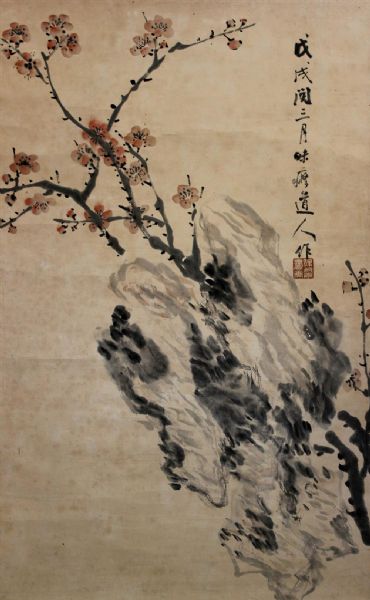 戊戌閏三月味癯道人作